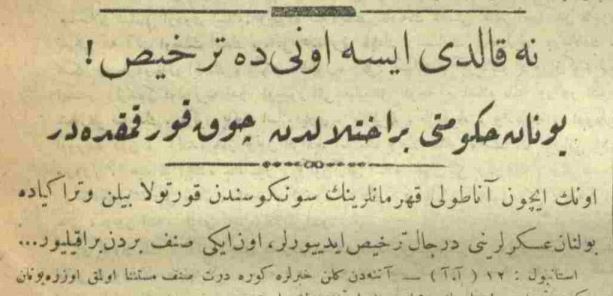 نه قالدی ایسه اونی ده ترخیص !
یونان حکومتی براختلالدن چوق قورقمقده در
اونك ایچون آناطولی قهرمانلرینك سونكوسندن قورتولا بیلن وتراكیاده
بولنان عسكرلرینی درحال ترخیص ایدییورلر، اون ایكی صنف بردن براقیلیور...
استانبول : ١٢ ( آ.آ ) — آتنه دن كلن خبرلره كوره درت صنف مستثنا اولمق اوزره یونان